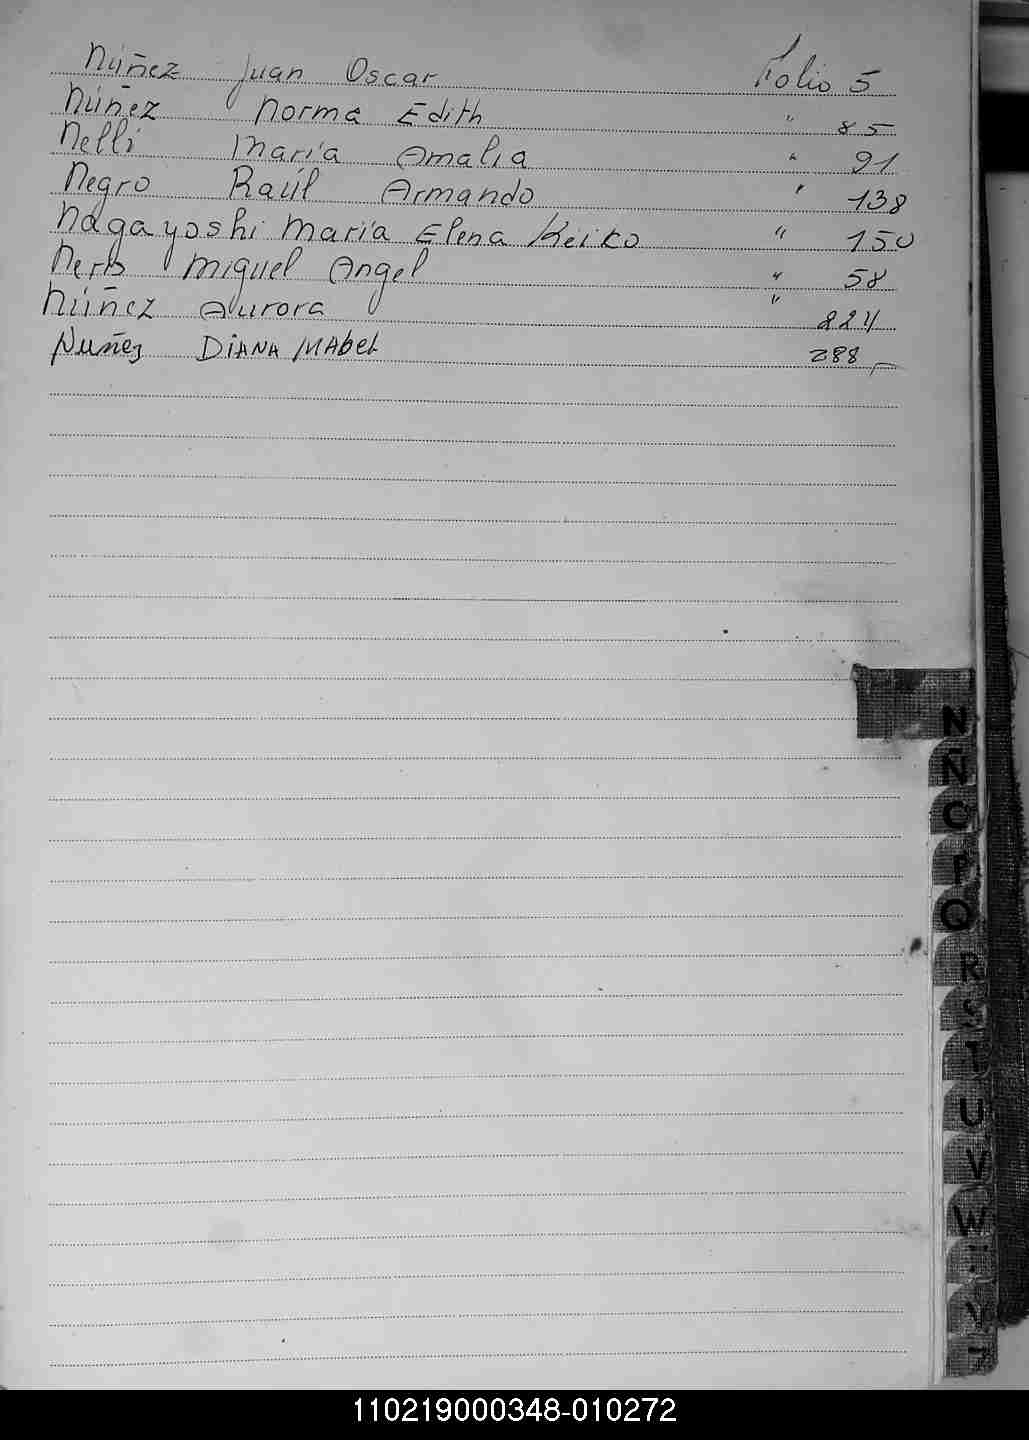 Núñez Juan Oscar Folio 5
Núñez Norma Edith " 85
Nelli María Amalia " 91
Negro Raúl Armando " 138
Nagayoshi María Elena Keiko " 150
Miguel Angel " 58
Núñez Aurora " 224
Nuñez DIANA MAbel 288
N
Ñ
O
P
Q
R
S
T
U
V
W
Y
Z
110219000348-010272